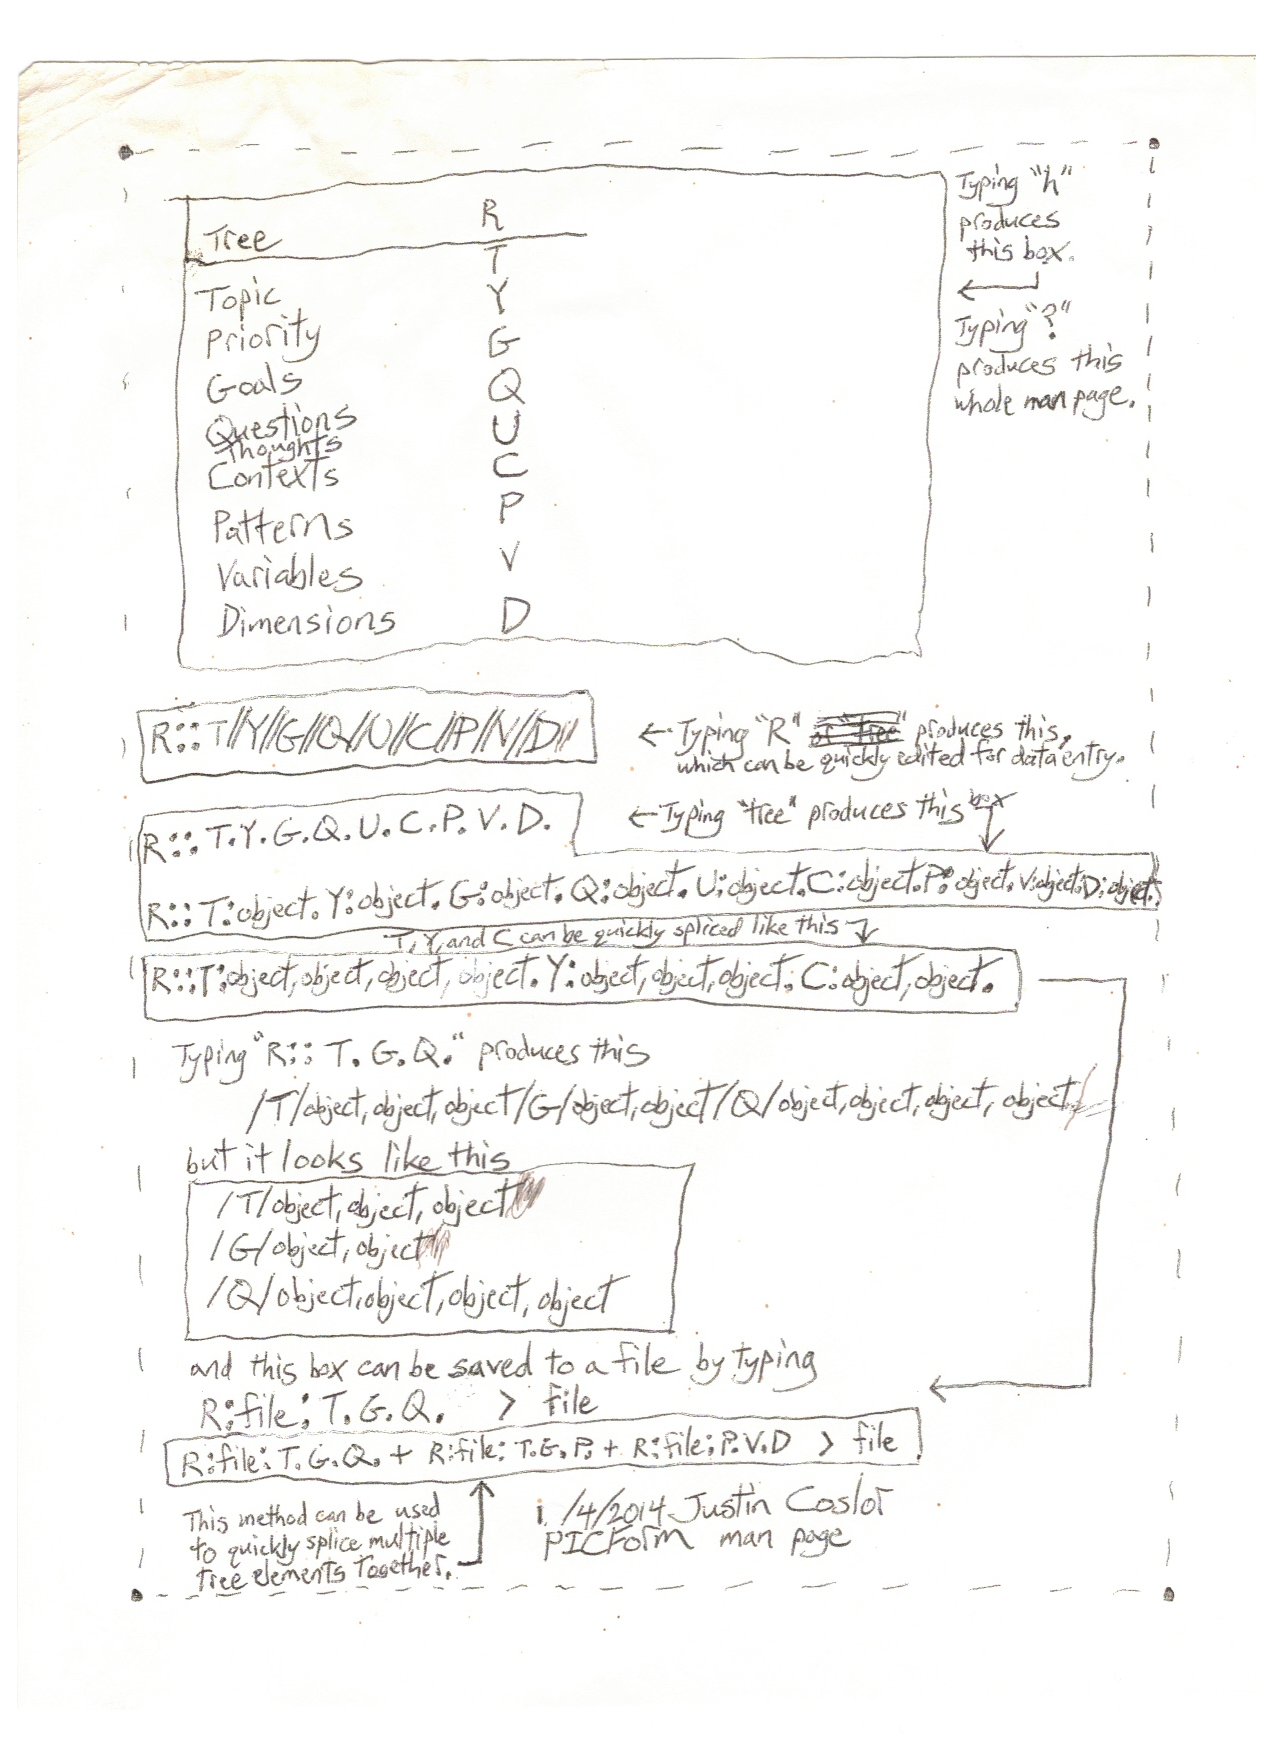 Tree R
Topic T
Priority Y
Goals G
Questions Q
Thoughts U
Contexts C
Patterns P
Variables V
Dimensions D
Typing "h"
produces
this box.
Typing "?"
produces this
whole man page.
R::T//Y//G//Q//U//C//P//V//D//
← Typing "R" or "tree" produces this,
which can be quickly edited for data entry.
R:: T.Y.G.Q.U.C.P.V.D.
← Typing "tree" produces this box
R:: T:object. Y:object. G:object. Q:object. U:object. C:object. P:object. V:object. D:object.
T, Y, and C can be quickly spliced like this
R::T:object,object,object,object. Y:object,object,object. C:object,object.
Typing "R:: T. G. Q." produces this
/T/object,object,object/G/object,object/Q/object,object,object,object/
but it looks like this
/T/object,object,object
/G/object,object
/Q/object,object,object,object
and this box can be saved to a file by typing
R:file:T.G.Q. > file
R:file:T.G.Q. + R:file:T.G.P. + R:file:P.V.D > file
This method can be used
to quickly splice multiple
tree elements together.
1/4/2014 Justin Coslor
PICForm man page